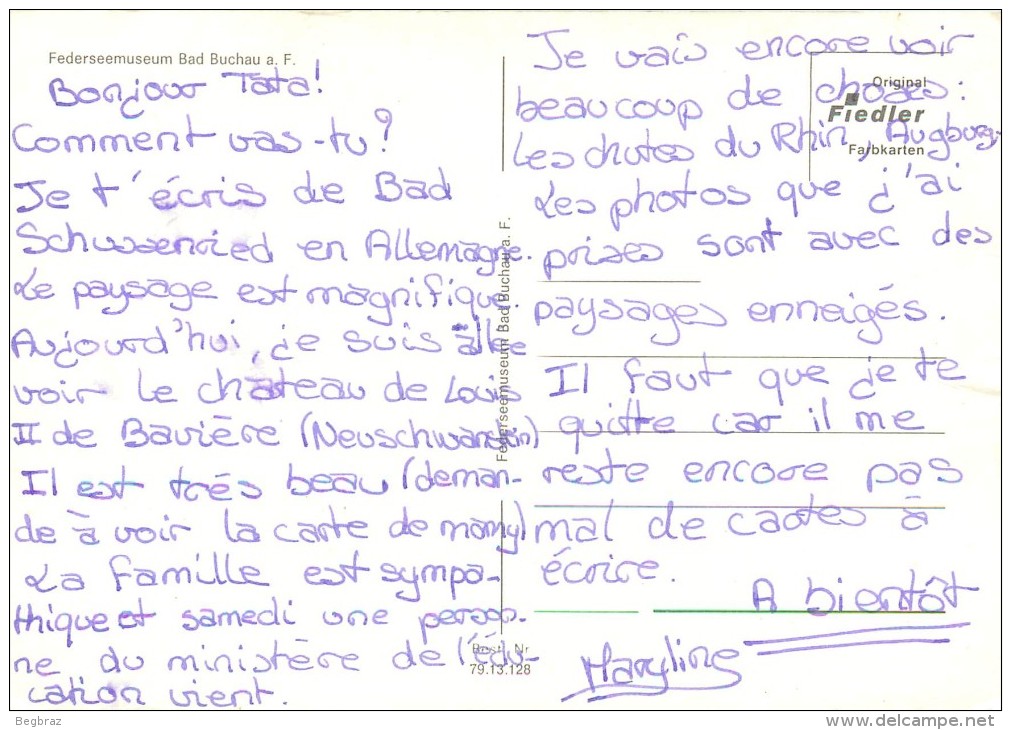 Federseemuseum Bad Buchau a. F.
Bonjour Tata!
Comment vas-tu?
Je t'écris de Bad
Schussenried en Allemagne.
Le paysage est magnifique.
Aujourd'hui, je suis allée
voir le chateau de Louis
II de Bavière (Neuschwanstein)
Il est très beau (deman-
de à voir la carte de mamy)
La famille est sympa-
thique et samedi une person-
ne du ministère de l'édu-
cation vient.
Je vais encore voir
beaucoup de choses:
Les chutes du Rhin, Augburg.
Les photos que j'ai
prises sont avec des
paysages enneigés.
Il faut que je te
quitte car il me
reste encore pas
mal de cartes à
écrire.
A bientôt
Maryline
Original
Fiedler
Farbkarten
Federseemuseum Bad Buchau a. F.
Best. Nr
79.13.128
Begbraz
www.delcampe.net